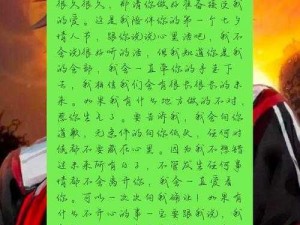 很久很久，那请你做好准备接受我
的爱。这是我陪伴你的第一个七夕
情人节，跟你说说心里话吧，我不
会说很好听的话，但我知道你是我
的全部，我会一直牵你的手走下
去，我相信我们会有很长很长的未
来。如果我有什么地方做的不对，
惹你生气了。要告诉我，我会向你
道歉，无条件的向你低头，任何时
候都不要藏在心里。因为我不想错
过未来所有日子，不管发生任何事
情都不会离开你，我会一直爱着
你。可以一次次向我确认！如果有
什么不开心的事一定要跟我说，我